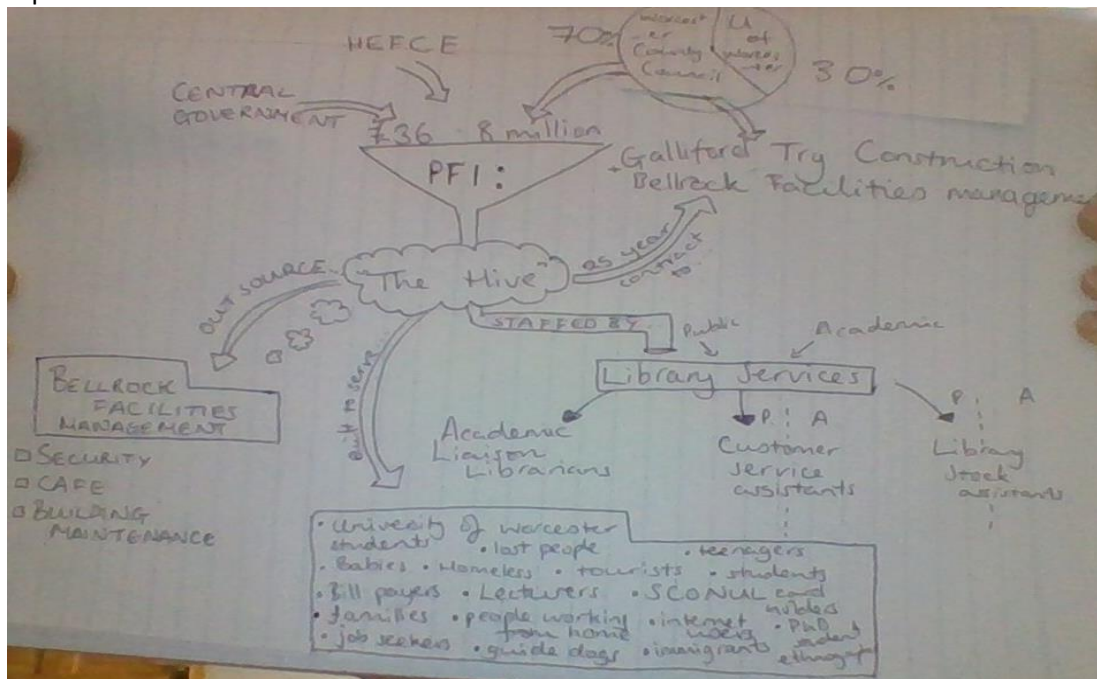 HEFCE
70%
Worcest
-er
County
Council
U
of
Worces
-ter
30%
CENTRAL
GOVERNMENT
736 8 million
PFI:
Galliford Try Construction
+ Bellrock Facilities manageme
"The Hive"
25 year
contract
to...
OUT SOURCE...
built to serve...
STAFFED BY
Public
Academic
Library Services
BELLROCK
FACILITIES
MANAGEMENT
SECURITY
CAFE
BUILDING
MAINTENANCE
Academic
Liaison
Librarians
P A
Customer
service
assistants
P A
Library
Stock
assistants
• Univercity of worcester
students • lost people • teenagers
• Babies • Homeless • tourists • students
• Bill payers • Lecturers • SCONUL card
holders
• families • people working
from home • internet
users • PhD
student
ethnograp
• job seekers • guide dogs • immigrants